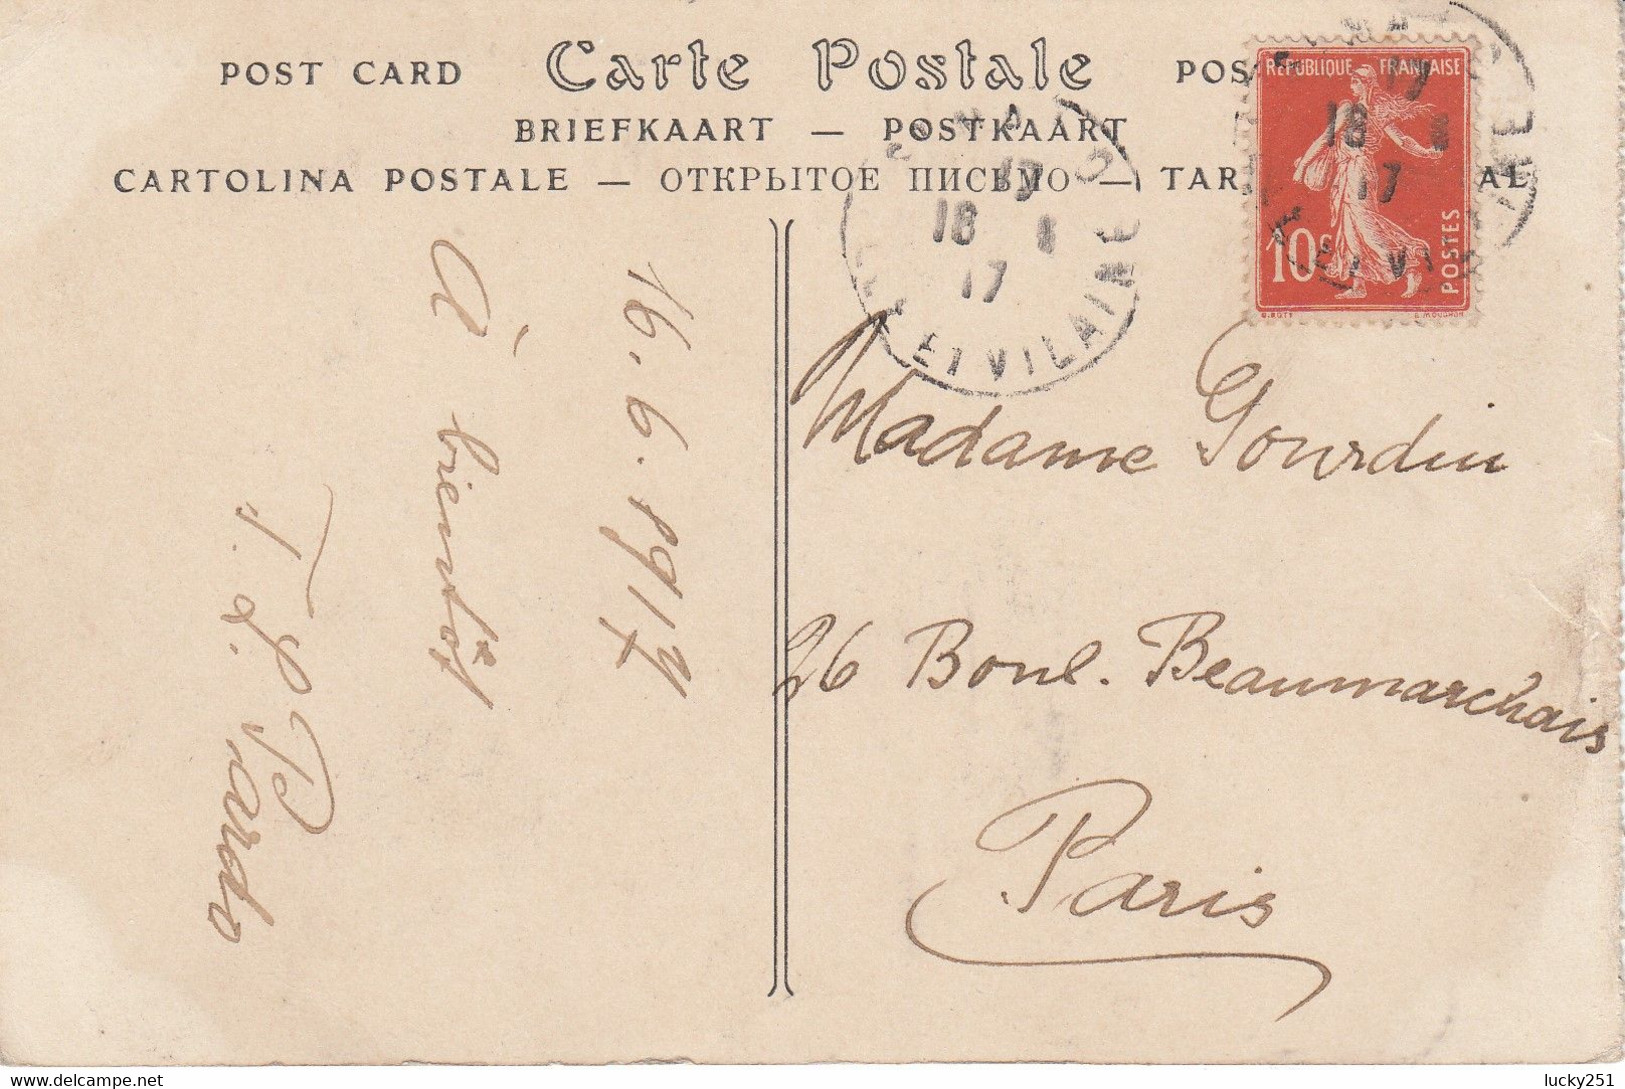 POST CARD Carte Postale POS
BRIEFKAART — POSTKAART
CARTOLINA POSTALE — ОТКРЫТОЕ ПИСЬМО — TAR AL
REPUBLIQUE FRANÇAISE
10c
POSTES
17
18
17
ET VILAINE
17
18
17
16.6.1917
À bientôt
T. L. Pardo
Madame Gourdin
26 Boul. Beaumarchais
Paris
lucky251